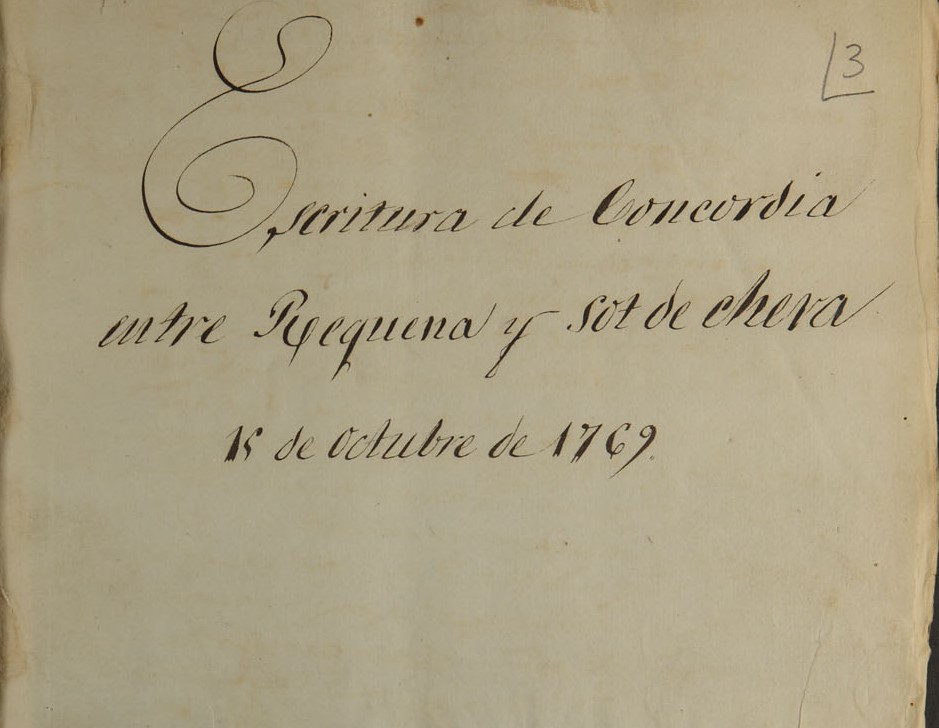 3
Escritura de Concordia
entre Requena y sot de chera
15 de Octubre de 1769.